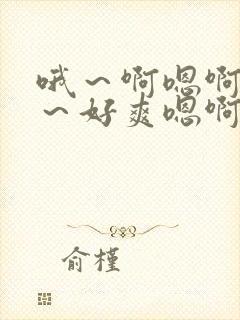 哦～啊嗯啊
～好爽嗯啊
俞槿